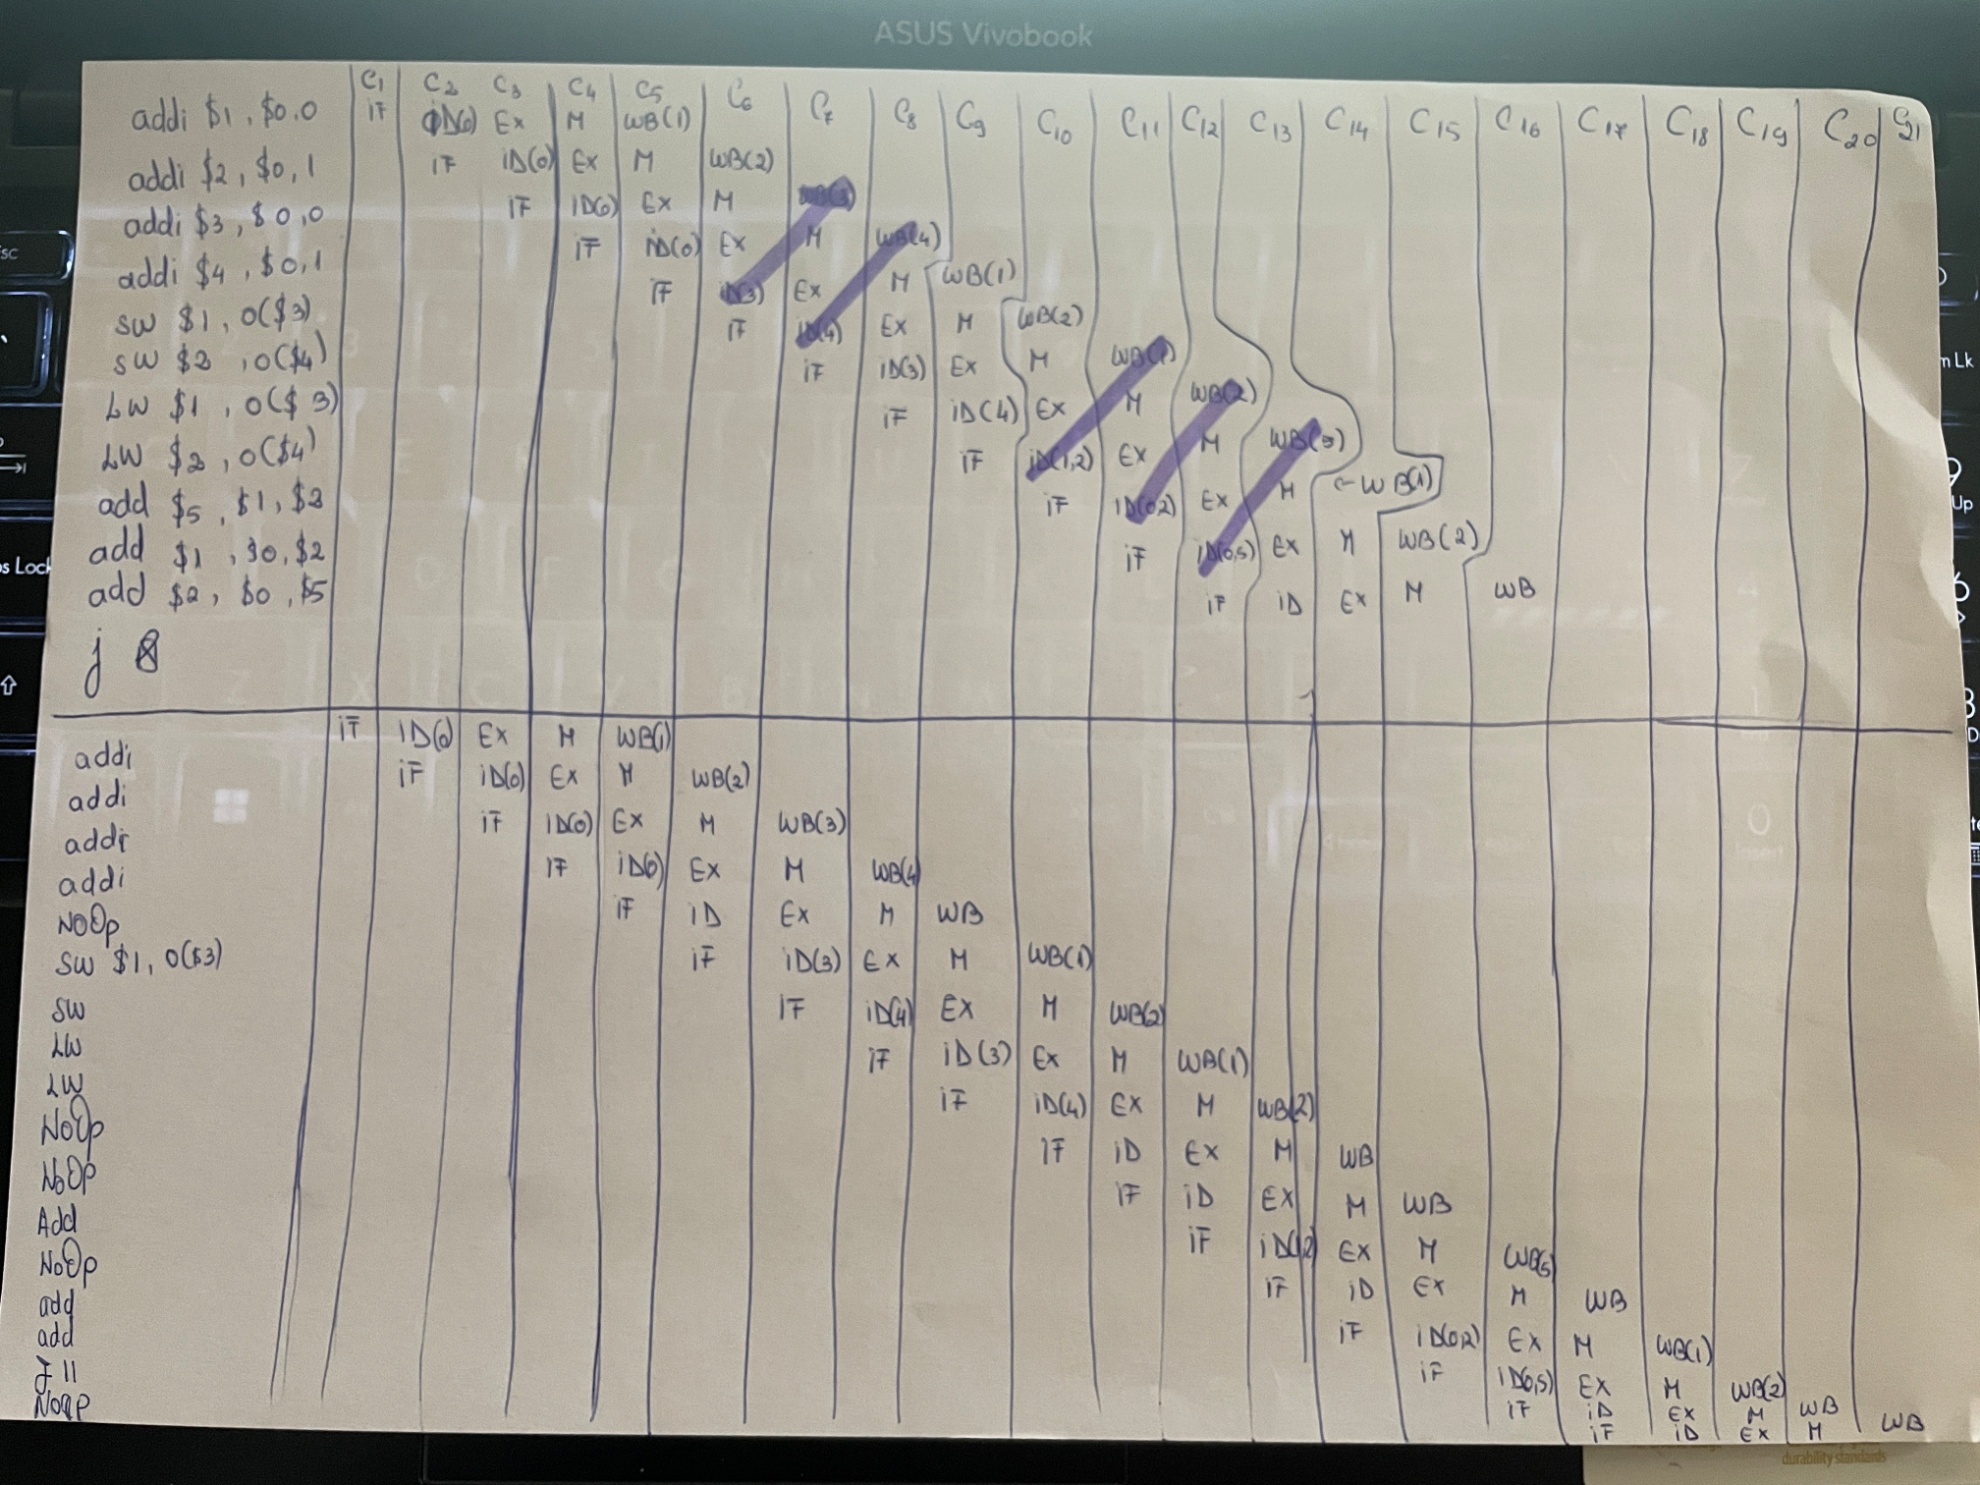 ASUS Vivobook
C1 C2 C3 C4 C5 C6 C7 C8 C9 C10 C11 C12 C13 C14 C15 C16 C17 C18 C19 C20
addi $1, $0,0 iF iD(0) Ex M WB(1)
addi $2, $0,1 iF iD(0) Ex M WB(2)
addi $3, $0,0 iF iD(0) Ex M WB(3)
addi $4, $0,1 iF iD(0) Ex M WB(4)
SW $1, 0($3) iF iD(3) Ex M WB(1)
SW $2, 0($4) iF iD(4) Ex M WB(2)
LW $1, 0($3) iF iD(3) Ex M WB(1)
LW $2, 0($4) iF iD(4) Ex M WB(2)
add $5, $1, $2 iF iD(1,2) Ex M WB(5)
add $1, $0, $2 iF iD(0,2) Ex M WB(1)
add $2, $0, $5 iF iD(0,5) Ex M WB(2)
j 8 iF iD Ex M WB
addi iF iD(0) Ex M WB(1)
addi iF iD(0) Ex M WB(2)
addi iF iD(0) Ex M WB(3)
addi iF iD(0) Ex M WB(4)
NoOp iF iD Ex M WB
SW $1, 0($3) iF iD(3) Ex M WB(1)
SW iF iD(4) Ex M WB(2)
LW iF iD(3) Ex M WB(1)
LW iF iD(4) Ex M WB(2)
NoOp iF iD Ex M WB
NoOp iF iD Ex M WB
Add iF iD(1,2) Ex M WB(5)
NoOp iF iD Ex M WB
add iF iD(0,2) Ex M WB(1)
add iF iD(0,5) Ex M WB(2)
J 11 iF iD Ex M WB
Noop iF iD Ex M WB
durability standards